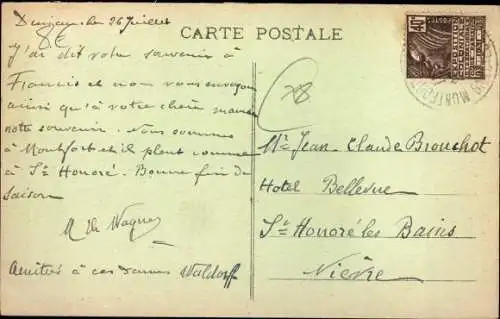 CARTE POSTALE
26 Juillet
J'ai dit votre souvenir à
Francis et nous vous envoyons
ainsi qu'à votre chère maman
notre souvenir. Nous sommes
à Montfort et il pleut comme
à St Honoré. Bonne fin de
saison
Amitiés à ces dames Waldorff
78
POSTES
40c
MONTFORT
Mr Jean-Claude Brouchot
Hotel Bellevue
St Honoré les Bains
Nièvre